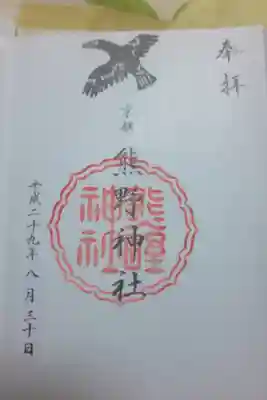 奉拝
京都
熊野神社
熊野神社
平成二十九年八月三十日